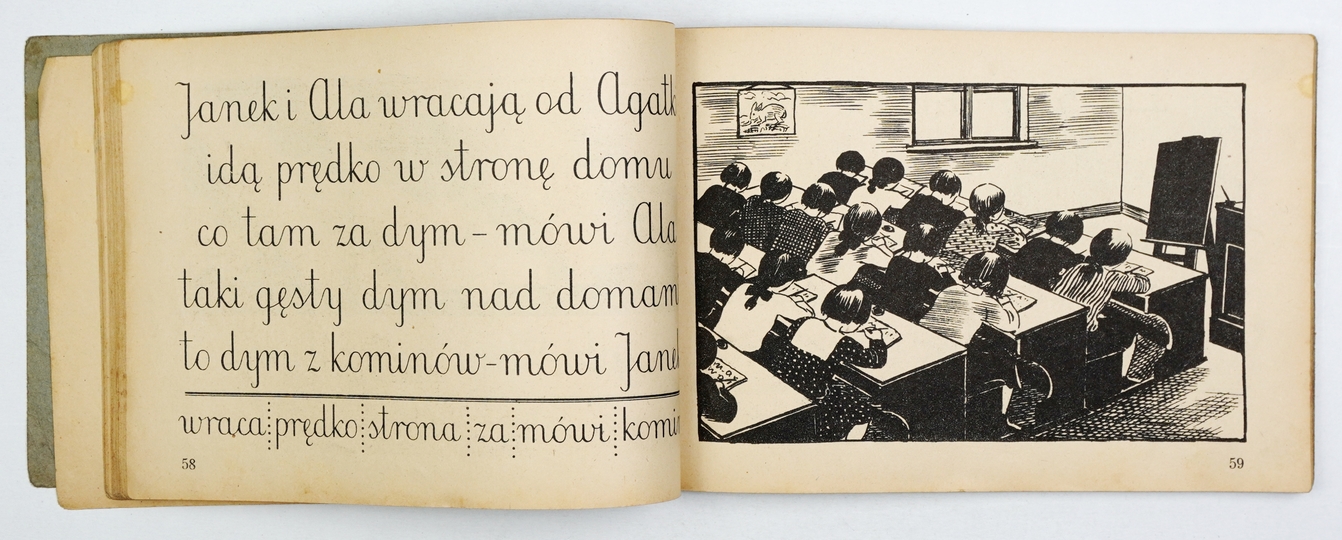 Janek i Ala wracają od
idą prędko w stronę domu
co tam za dym - mówi Ala
taki gęsty dym nad
to dym z kominów - mówi
wraca prędko strona za mówi
58
59